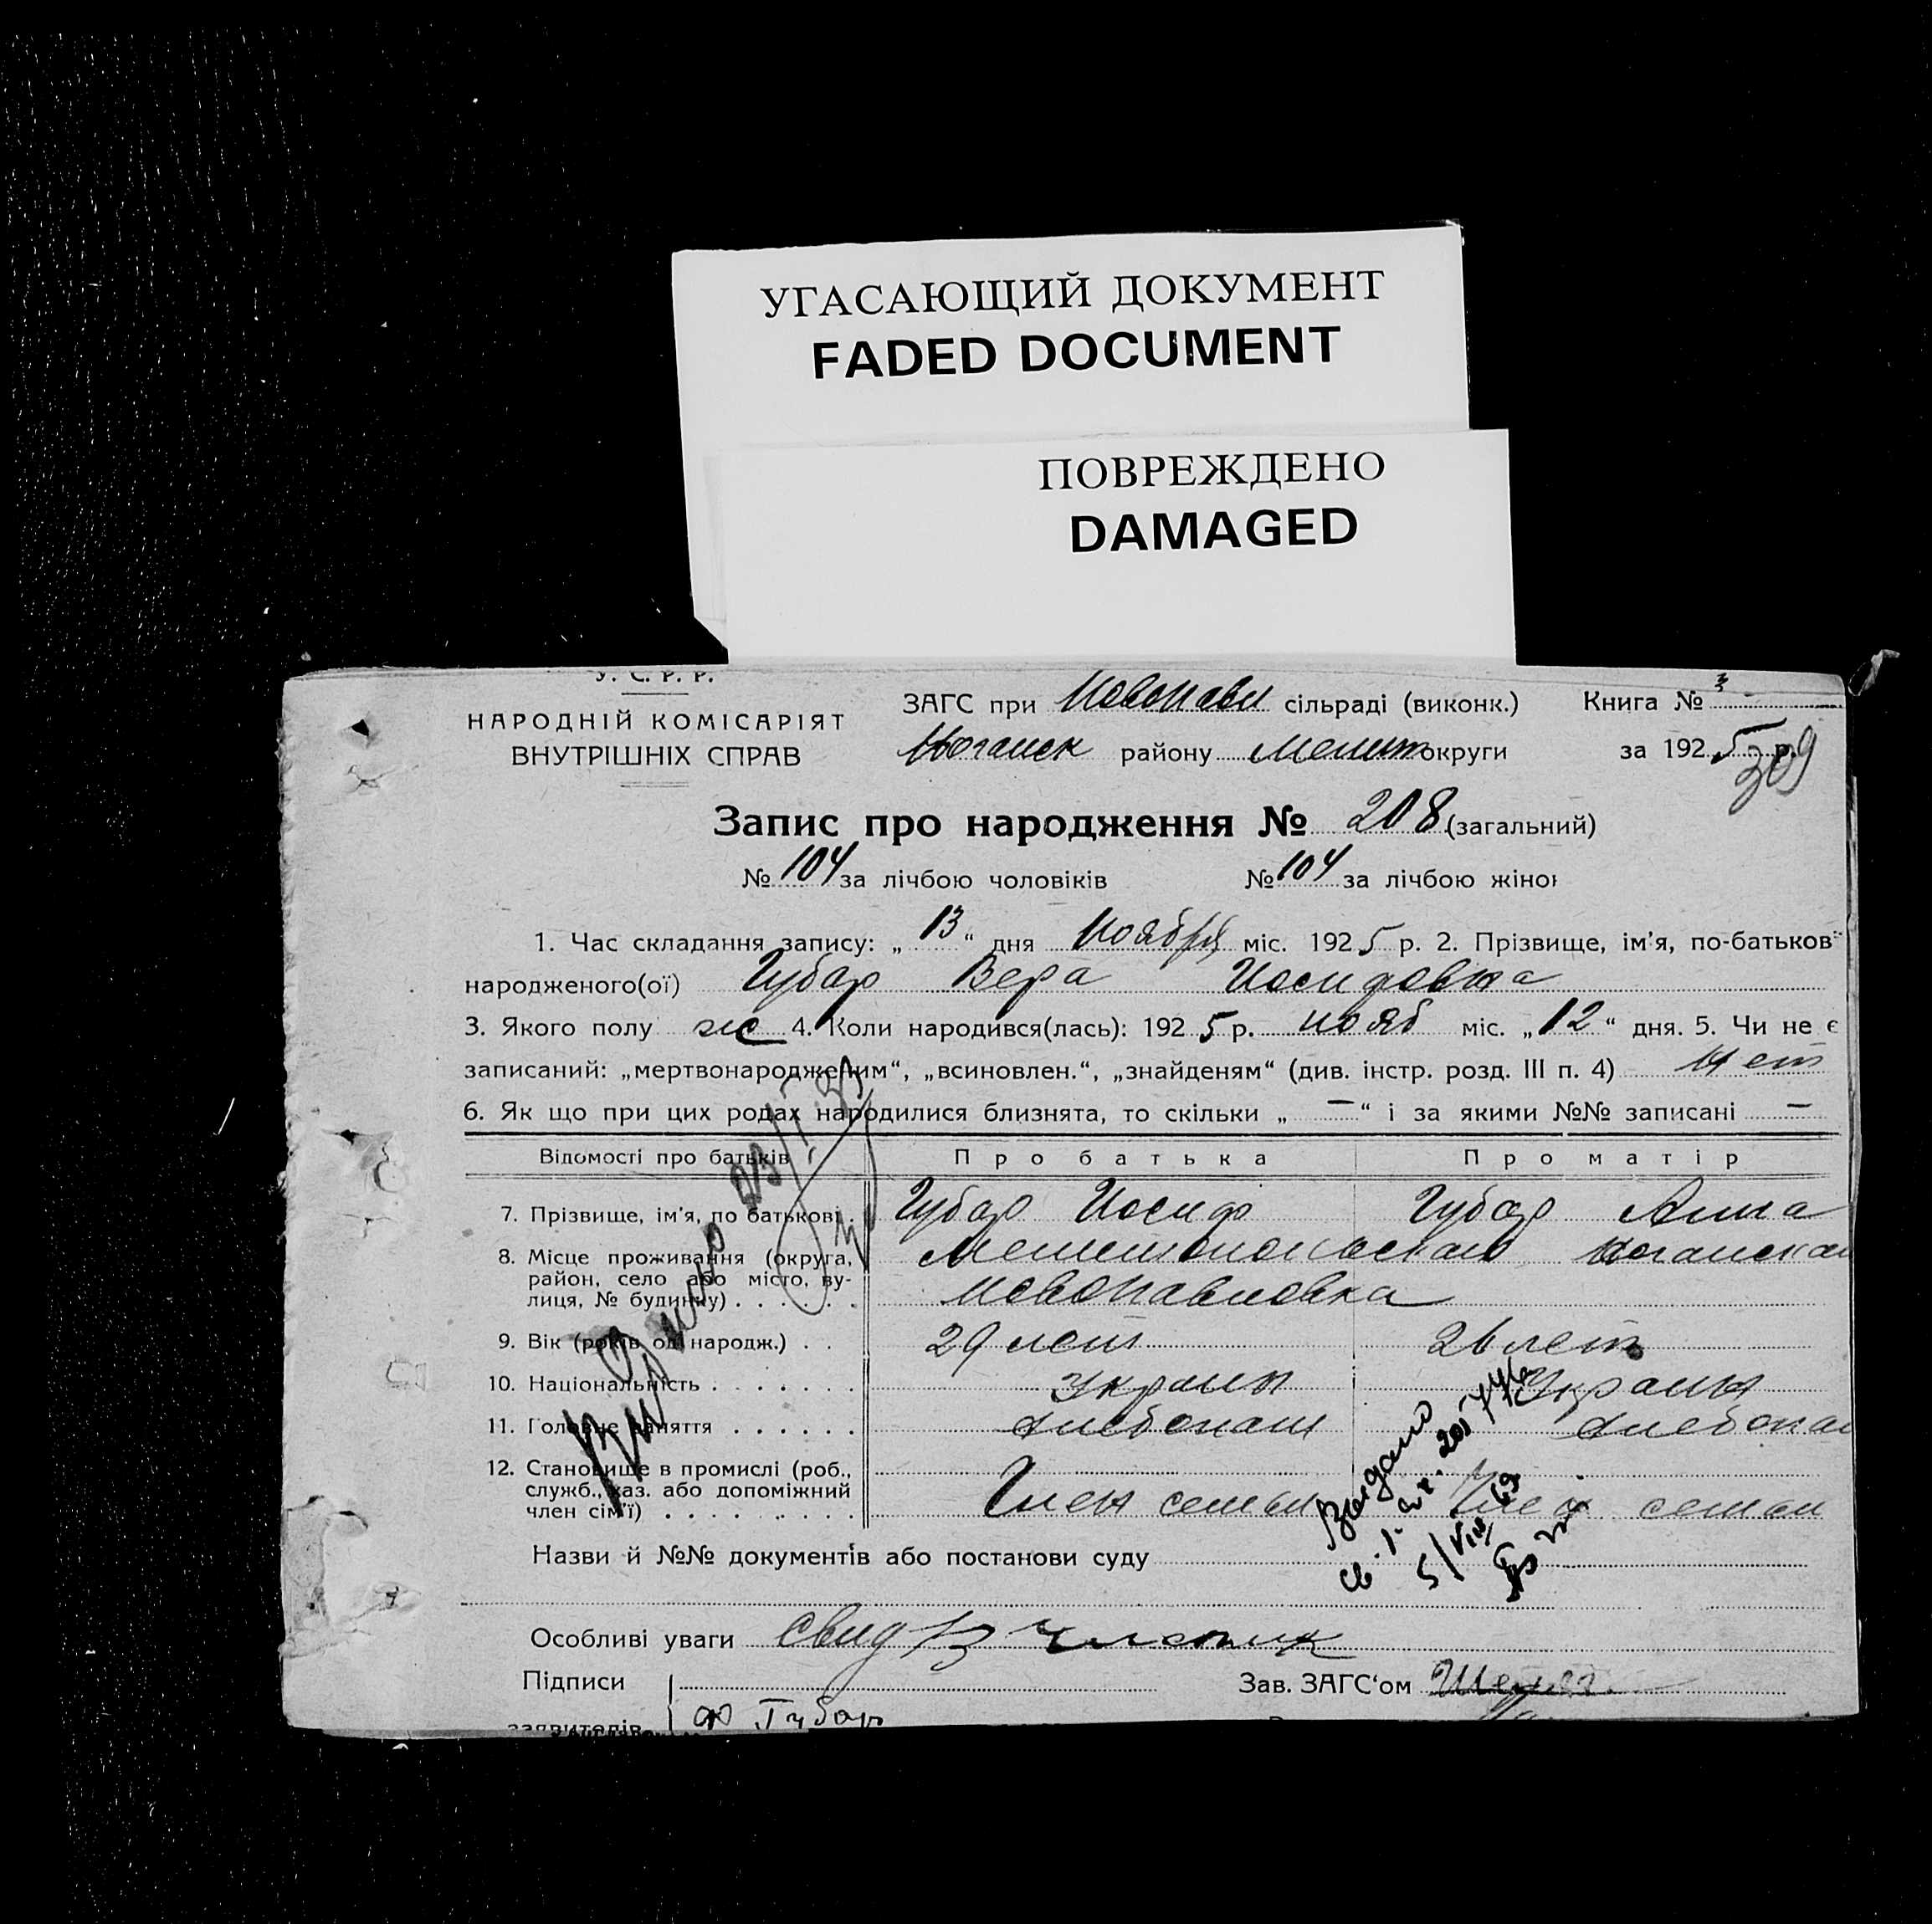 УГАСАЮЩИЙ ДОКУМЕНТ
FADED DOCUMENT
ПОВРЕЖДЕНО
DAMAGED
У. С. Р. Р.
НАРОДНІЙ КОМІСАРІЯТ
ВНУТРІШНІХ СПРАВ
ЗАГС при Новопавл сільраді (виконк.) Книга № 3
району Мелит округи за 1925 р.
309
Запис про народження № 208 (загальний)
№ 104 за лічбою чоловіків № 104 за лічбою жінок
1. Час складання запису: „13“ дня Ноября міс. 1925 р. 2. Прізвище, ім'я, по-батькові
народженого(ої) Губар Вера Иосифовна
3. Якого полу жс 4. Коли народився(лась): 1925 р. нояб міс. „12“ дня. 5. Чи не є
записаний: „мертвонародженим“, „всиновлен.“, „знайденям“ (див. інстр. розд. III п. 4) Нет
6. Як що при цих родах народилися близнята, то скільки „ — “ і за якими №№ записані —
Відомості про батьків Про батька Про матір
7. Прізвище, ім'я, по батькові Губар Иосиф Губар Анна
8. Місце проживання (округа, район, село або місто, ву-
лиця, № будинку) Новопавловка
9. Вік (років од народж.) 29 лет 26 лет
10. Національність украин украин
11. Головне заняття хлебопаш хлебопаш
12. Становище в промислі (роб.,
служб., хаз. або допоміжний
член сім'ї) Член семьи Член семьи
Видано
Выдано
5/VIII 69
Назви й №№ документів або постанови суду
Особливі уваги свид
Підписи
заявителів Губар
Зав. ЗАГС'ом